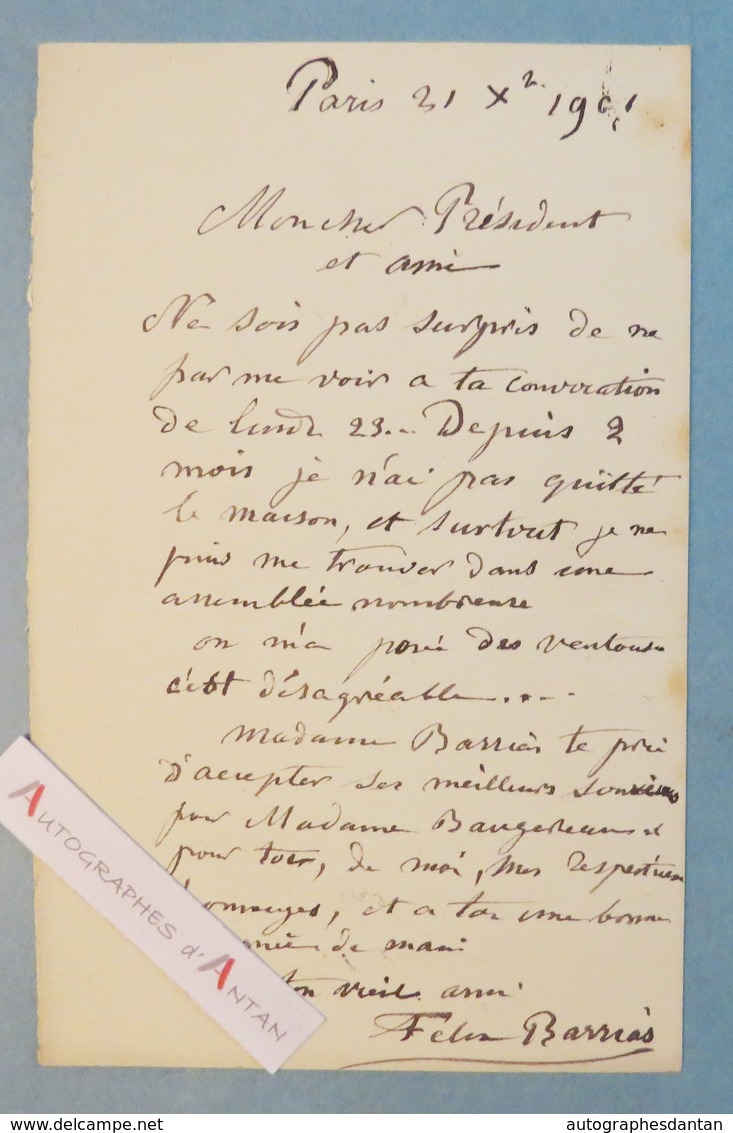 Paris 21 Xᵇʳ 1901
Mon cher Président
et ami
Ne sois pas surpris de ne
pas me voir a ta convocation
de lundi 23.. Depuis 2
mois je n'ai pas quitté
la maison, et surtout je ne
puis me trouver dans une
assemblée nombreuse
on m'a posé des ventouses
c'est désagréable....
Madame Barrias te prie
d'accepter ses meilleurs souvenirs
pour Madame Bouguereau et
pour toi, de moi, mes respectueux
hommages, et a toi une bonne
poignée de main
ton vieil ami
Felix Barrias
AUTOGRAPHES d'ANTAN
delcampe.net
autographesdantan